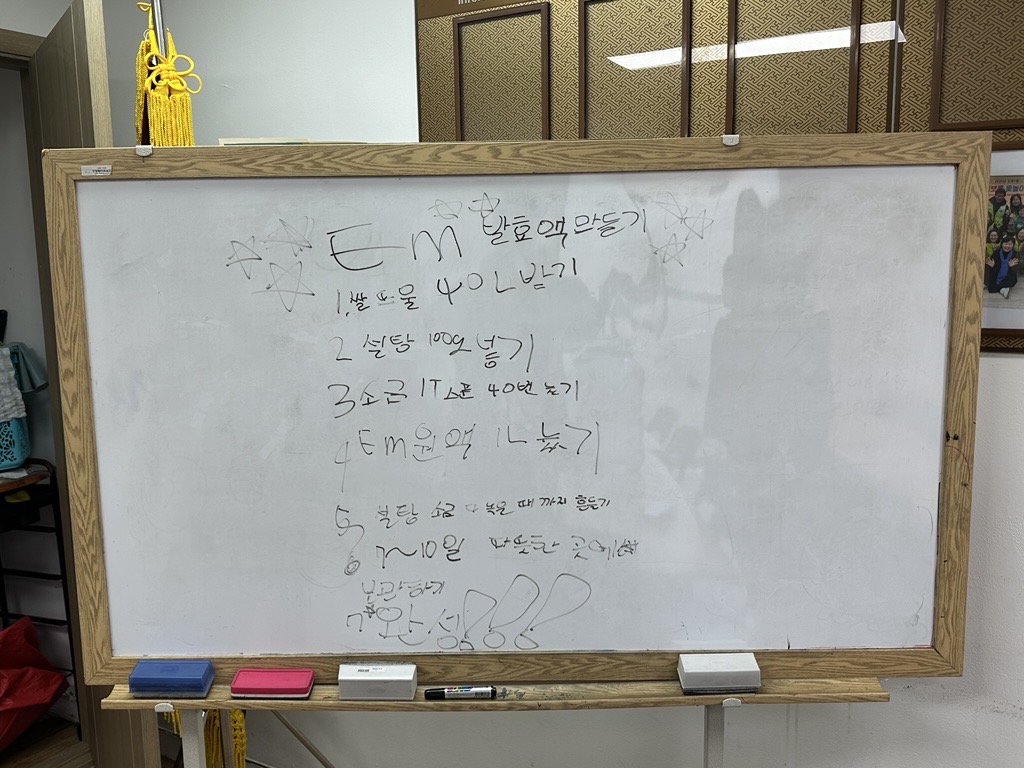 EM 발효액 만들기
1. 쌀뜨물 40L 받기
2 설탕 넣기
3 소금 1T 스푼 40번 놓기
4 EM원액 1L 넣기
5, 설탕 소금 다 녹을 때 까지 흔들기
6 7~10일 따뜻한 곳에
보관하기
7 완성!!!